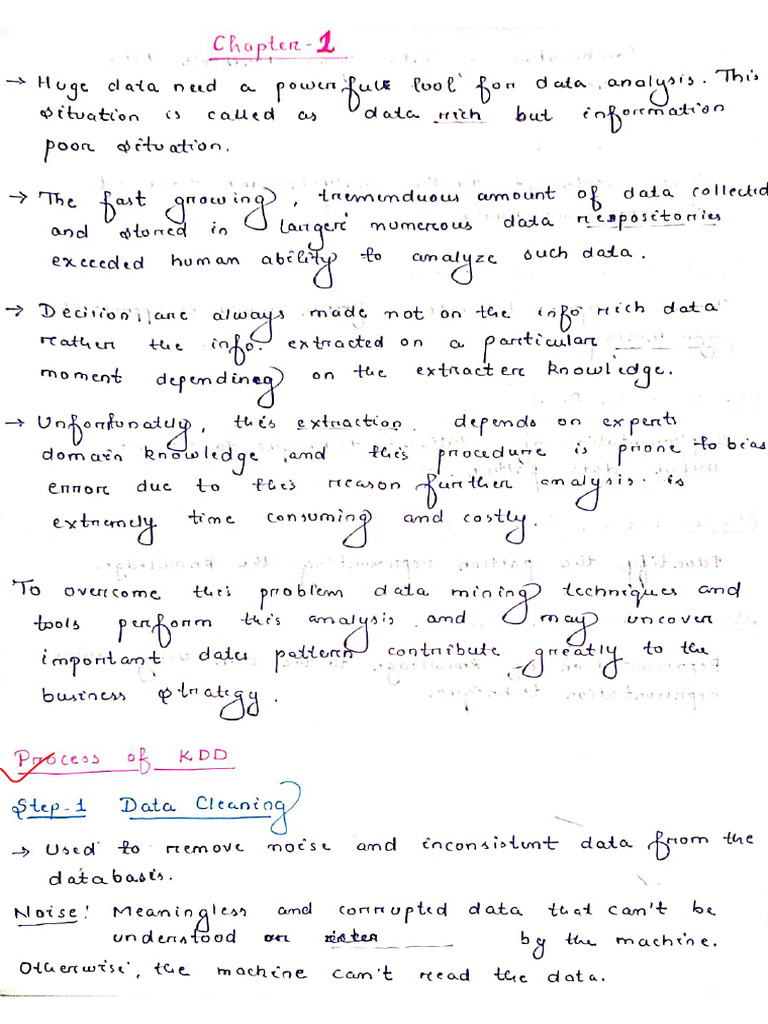 Chapter-1
→ Huge data need a powerfull tool for data analysis. This
situation is called as data rich but information
poor situation.
→ The fast growing, tremenduous amount of data collected
and stored in larger numerous data respositories
exceeded human ability to analyze such data.
→ Decision are always made not on the info rich data
rather the info. extracted on a particular
moment depending on the extracter knowledge.
→ Unfortunately, this extraction depends on experts
domain knowledge and this procedure is prone to bias
error due to this reason further analysis is
extremely time consuming and costly.
To overcome this problem data mining techniques and
tools perform this analysis and may uncover
important data pattern contribute greatly to the
business strategy.
Process of KDD
Step-1 Data Cleaning
→ Used to remove noise and inconsistent data from the
databasis.
Noise: Meaningless and corrupted data that can't be
understood or by the machine.
Otherwise, the machine can't read the data.